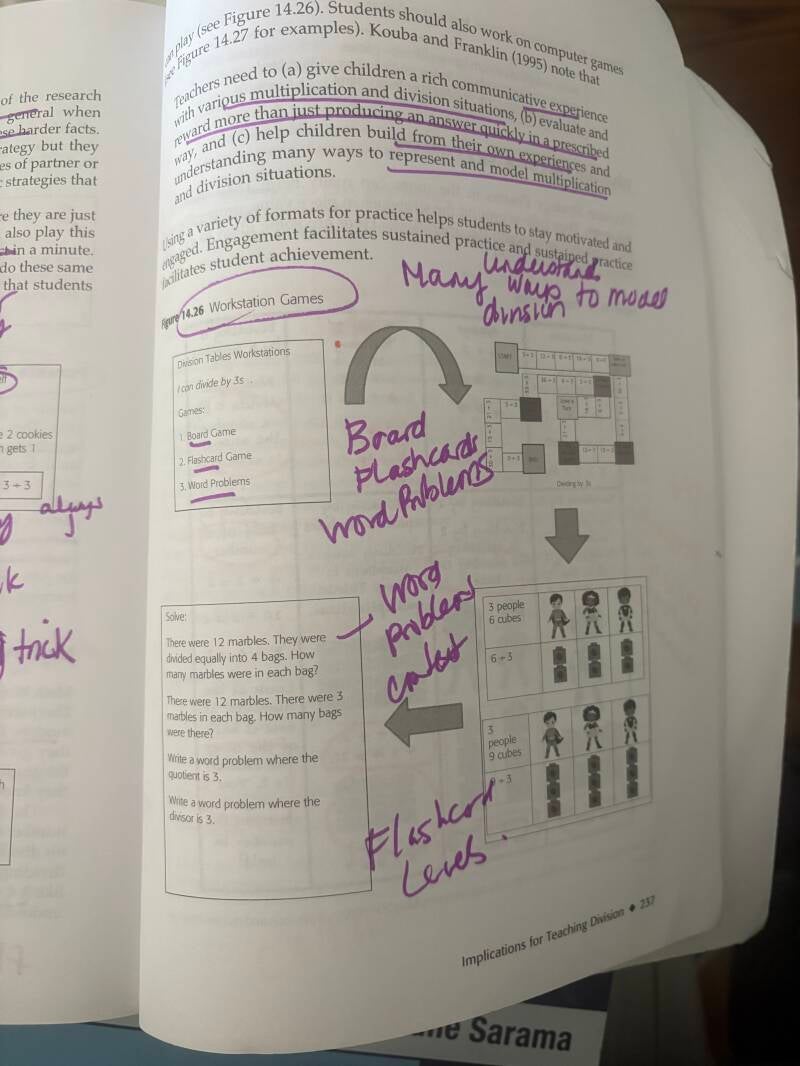 of the research
general when
harder facts.
but they
es of partner or
strategies that
e they are just
also play this
in a minute.
do these same
that students
2 cookies
gets 1
3 ÷ 3
always
trick
play (see Figure 14.26). Students should also work on computer games
Figure 14.27 for examples). Kouba and Franklin (1995) note that
Teachers need to (a) give children a rich communicative experience
with various multiplication and division situations, (b) evaluate and
reward more than just producing an answer quickly in a prescribed
way, and (c) help children build from their own experiences and
understanding many ways to represent and model multiplication
and division situations.
Using a variety of formats for practice helps students to stay motivated and
engaged. Engagement facilitates sustained practice and sustained practice
facilitates student achievement.
Understand
Many ways to model
division
Figure 14.26 Workstation Games
Division Tables Workstations
I can divide by 3s
Games:
1. Board Game
2. Flashcard Game
3. Word Problems
Board
Flashcards
Word Problems
START
END
Dividing by 3s
3 people
6 cubes
6 ÷ 3
3
people
9 cubes
÷ 3
Word
problem
context
Solve:
There were 12 marbles. They were
divided equally into 4 bags. How
many marbles were in each bag?
There were 12 marbles. There were 3
marbles in each bag. How many bags
were there?
Write a word problem where the
quotient is 3.
Write a word problem where the
divisor is 3.
Flashcard
Levels.
Implications for Teaching Division ◆ 237
Sarama